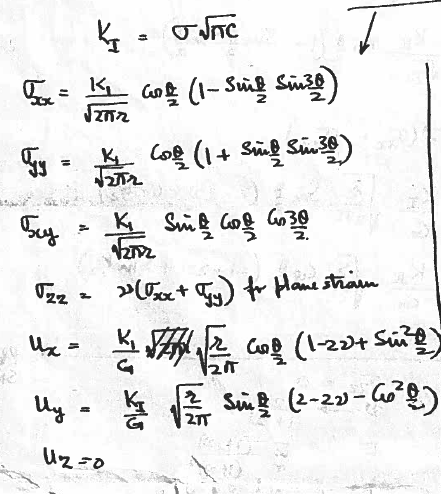 K_I = σ√πc
σ_xx = K_1/√2πr Cos θ/2 (1 - Sin θ/2 Sin 3θ/2)
σ_yy = K_1/√2πr Cos θ/2 (1 + Sin θ/2 Sin 3θ/2)
σ_xy = K_1/√2πr Sin θ/2 Cos θ/2 Cos 3θ/2
σ_zz = ν(σ_xx + σ_yy) for plane strain
u_x = K_1/G √r/2π Cos θ/2 (1-2ν + Sin² θ/2)
u_y = K_I/G √r/2π Sin θ/2 (2-2ν - Cos² θ/2)
u_z = 0